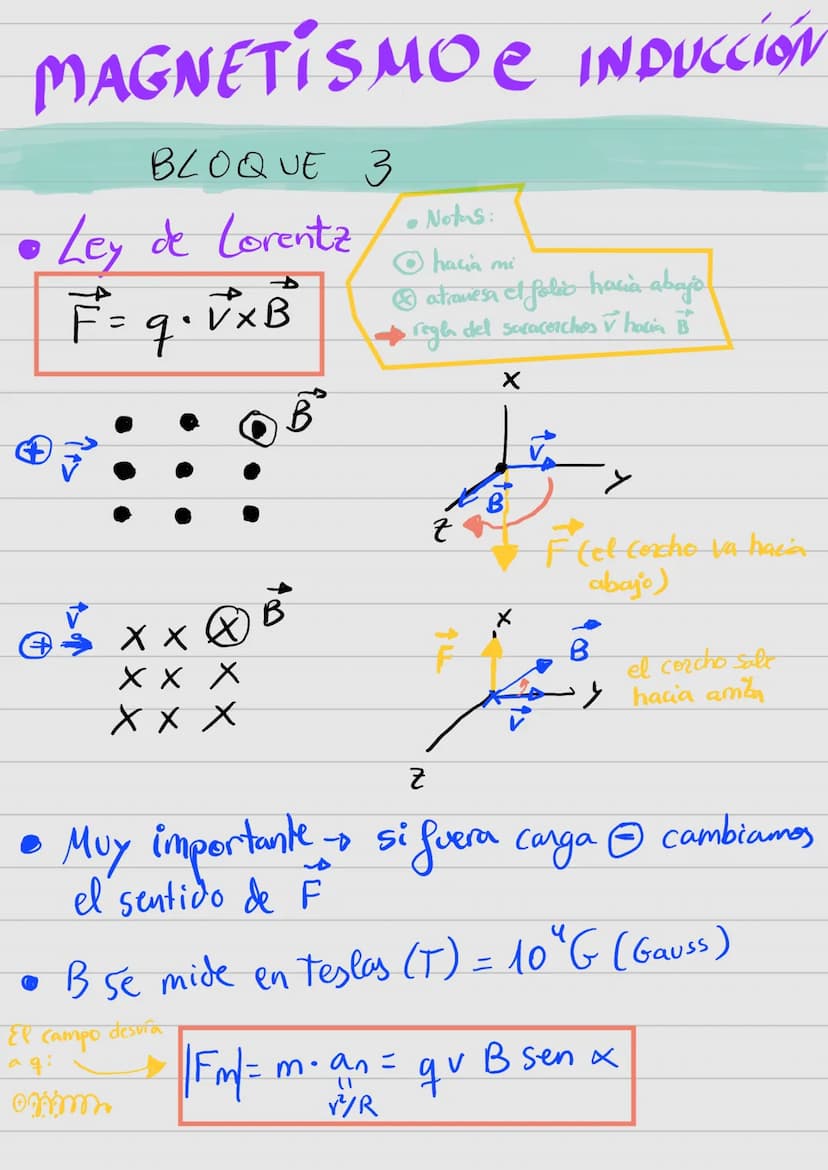 MAGNETISMO e INDUCCIÓN
BLOQUE 3
• Ley de Lorentz
F⃗ = q · v⃗ x B⃗
• Notas:
⊙ hacia mi
⊗ atraviesa el folio hacia abajo
→ regla del sacacorchos v⃗ hacia B⃗
⊕ v⃗
B⃗
X
v⃗
y
B⃗
z
F⃗ (el corcho va hacia
abajo)
⊕ v⃗
X X ⊗ B⃗
X X X
X X X
X
F⃗
B⃗
y
v⃗
z
el corcho sale
hacia arriba
• Muy importante → si fuera carga ⊖ cambiamos
el sentido de F⃗
• B se mide en Teslas (T) = 10⁴G (Gauss)
El campo desvía
a q:
|Fm| = m · an = q v B sen α
v²/R